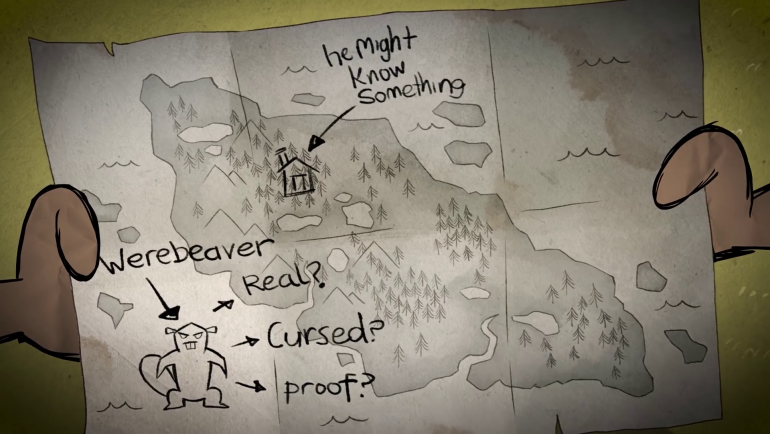 he Might
Know
Something
Werebeaver
Real?
Cursed?
proof?